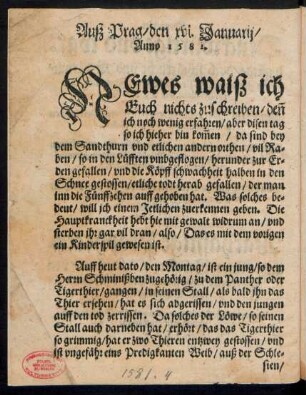 Auß Prag/den xvi. Januarij/
Anno 1581.
NEwes waiß ich
Euch nichts zuschreiben/deñ
ich noch wenig erfahren/aber disen tag
so ich hieher bin kom̃en / da sind bey
dem Sandthurn vnd etlichen andern orthen/ vil Ra-
ben / so in den Lüfften vmbgeflogen/ herunder zur Er-
den gefallen / vnd die Köpff schwachheit halben in den
Schnee gestossen/etliche todt herab gefallen/ der man
inn die Fünffzehen auff gehoben hat. Was solches be-
deut/ will ich einem Jetlichen zuerkennen geben. Die
Hauptkranckheit hebt hie mit gewalt widrum an/ vnd
sterben jhr gar vil dran / also / Das es mit dem vorigen
ein Kinderspil gewesen ist.
Auff heut dato /den Montag/ ist ein jung/so dem
Herrn Schminißben zugehörig / zu dem Panther oder
Tigerthier/gangen / in seinen Stall / als bald jhn das
Thier ersehen / hat es sich abgerissen / vnd den jungen
auff den tod zerrissen. Da solches der Löwe / so seinen
Stall auch darneben hat / erhört / das das Tigerthier
so grimmig/ hat er zwo Thieren entzwey gestossen / vnd
ist vngefähr eins Predigkanten Weib / auß der Schle-
sien/
1581. 4